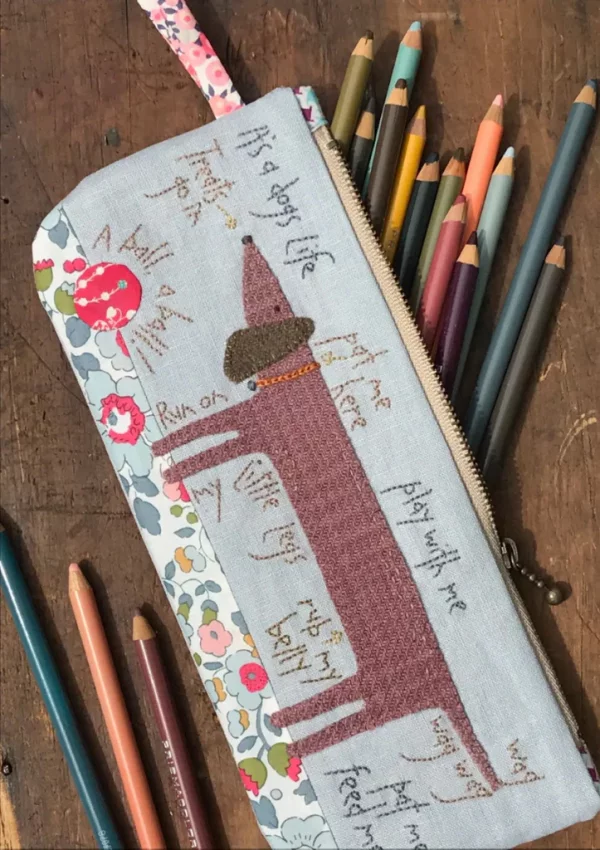 It's a dogs life
Treats
go in
A ball
a ball!
pat me
here
Run on
my
little legs
play with me
rub my
belly
wag wag
wag
pat me
feed me
PRISMACOLOR